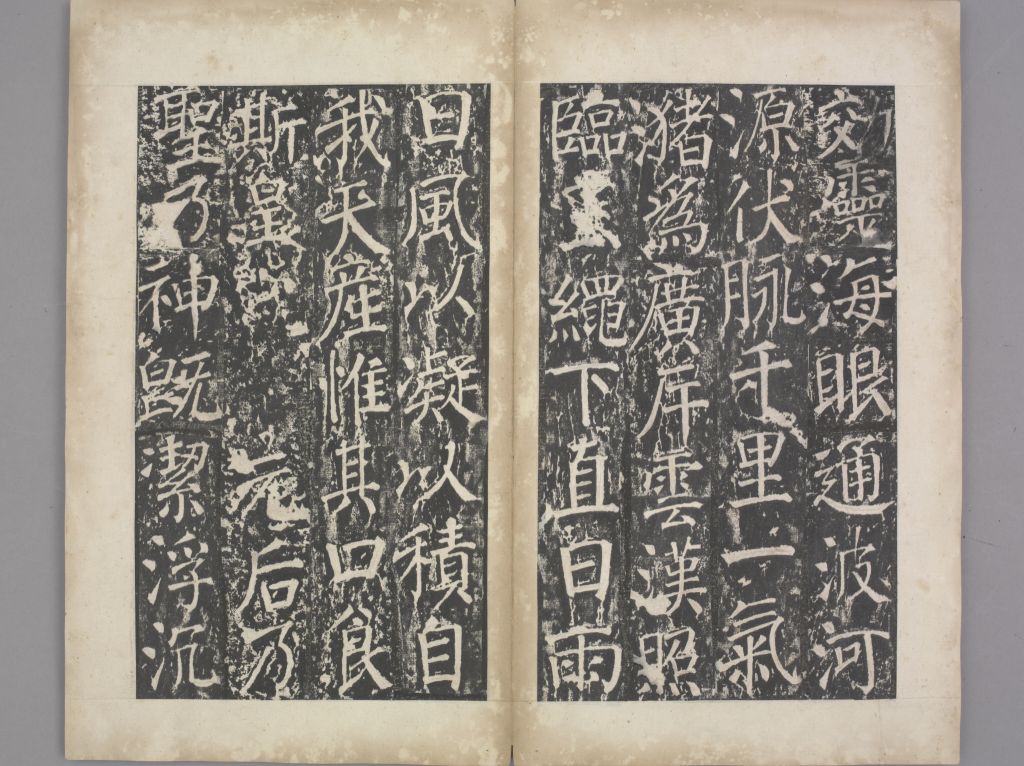 効靈海眼通波河
源伏脉千里一氣
猪為廣斥雲漢照
臨繩下直日雨
曰風以凝以積自
我天産惟其口食
斯皇元后乃
聖乃神既潔浮沉